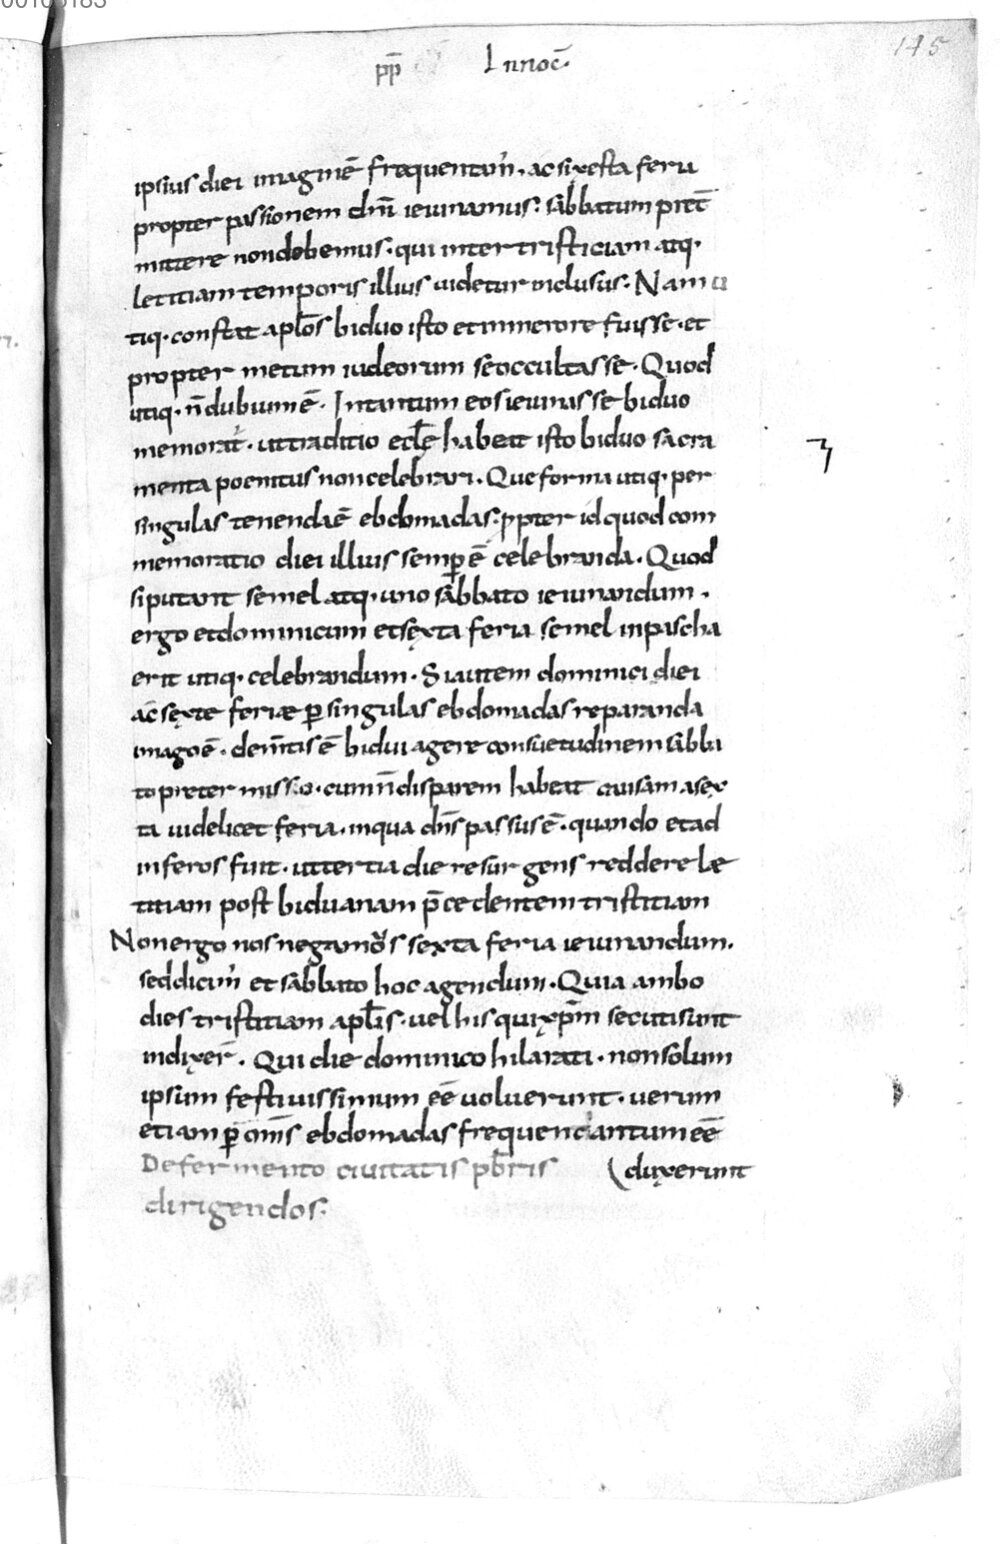 00106183
145
pp̄ Innoc̄.
ipsius diei imaginē frequentam̄. ac si sexta feria
propter passionem dn̄i ieiunamus: sabbatum pret̄
mittere non debemus. qui inter tristiciam atq.
letitiam temporis illius uidetur inclusus. Nam u
tiq. constat apl̄os biduo isto et in merore fuisse. et
propter metum iudeorum se occultasse. Quod
utiq. n̄ dubium ē. Intantum eos ieiunasse biduo
memorat̄. ut traditio eccl̄e habeat isto biduo sacra
menta poenitus non celebrari. Que forma utiq. per
singulas tenenda ē ebdomadas. ꝓpter id quod com
memoratio diei illius semp̄ ē celebranda. Quod
si putant semel atq. uno sabbato ieiunandum.
ergo et dominicum et sexta feria semel in pascha
erit utiq. celebrandum. Si autem dominici diei
ac sexte feriæ ꝑ singulas ebdomadas reparanda
imago ē. dem̄tis ē bidui agere consuetudinem sabba
to pretermisso. cum n̄ disparem habeat causam a sex
ta uidelicet feria. in qua dn̄s passus ē. quando et ad
inferos fuit. ut tertia die resurgens redderet le
titiam post biduanam p̄cedentem tristitiam
Non ergo nos negamus sexta feria ieiunandum.
sed dicim̄ et sabbato hoc agendum. Quia ambo
dies tristitiam apl̄is. uel his qui xp̄m secuti sunt
indixer̄. Qui die dominico hilarati. non solum
ipsum festiuissimum eē uoluerunt. uerum
etiam ꝑ om̄s ebdomadas frequentantum eē
(duxerunt
De fermento ciuitatis pb̄ris
dirigendos: